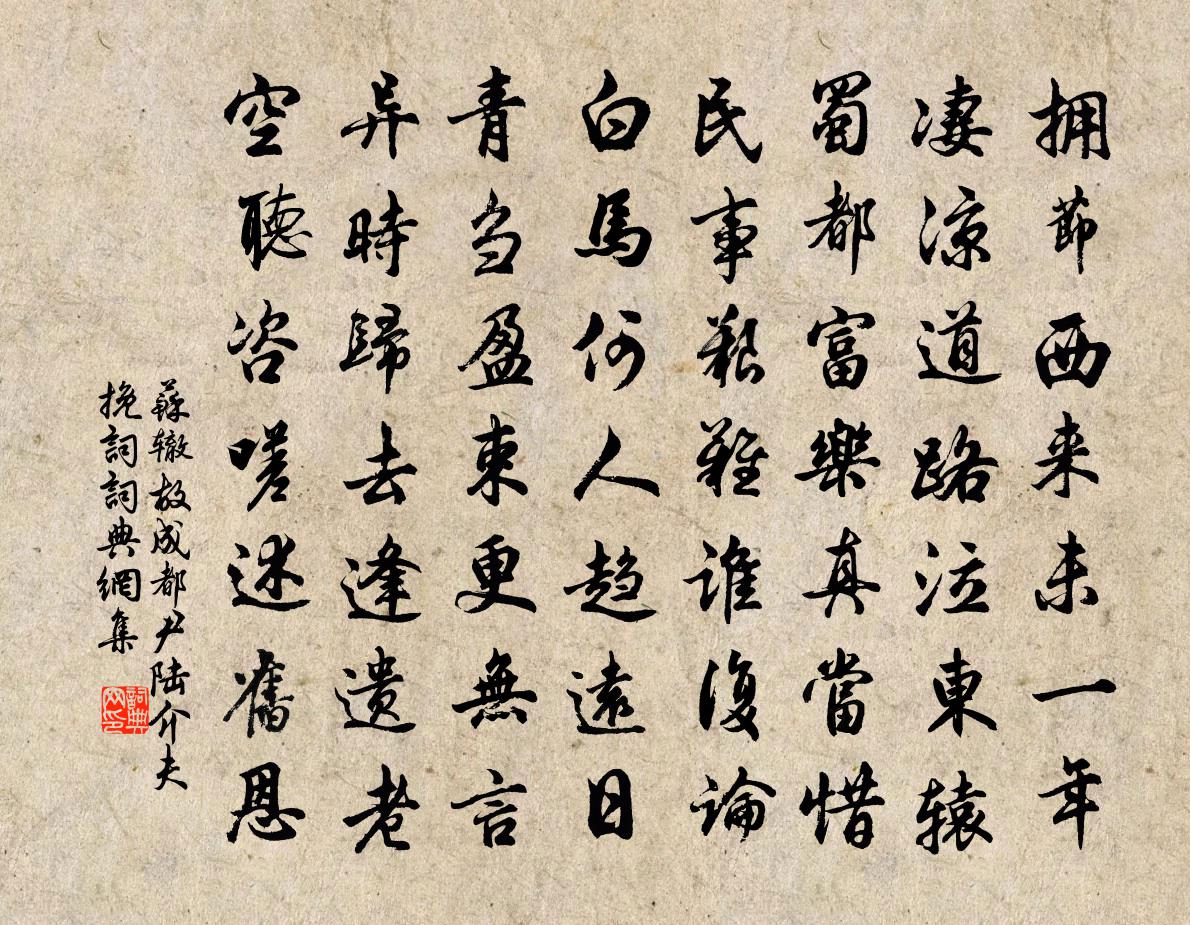 拥節西来未一年
凄涼道路泣東辕
蜀都富樂真當惜
民事艱難誰復論
白馬何人趋遠日
青刍盈束更無言
异時歸去逢遗老
空聽咨嗟述舊恩
蘇辙故成都尹陆介夫
挽詞詞典網集
詞典
网印